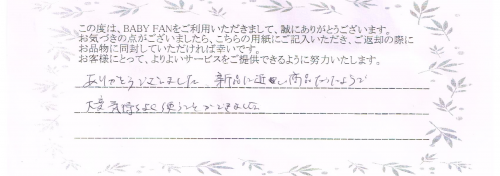 この度は、BABY FANをご利用いただきまして、誠にありがとうございます。
お気づきの点がございましたら、こちらの用紙にご記入いただき、ご返却の際に
お品物に同封していただければ幸いです。
お客様にとって、よりよいサービスをご提供できるように努力いたします。
ありがとうございました 新品に近い商品だったようで
大変気持ちよく使うことができました